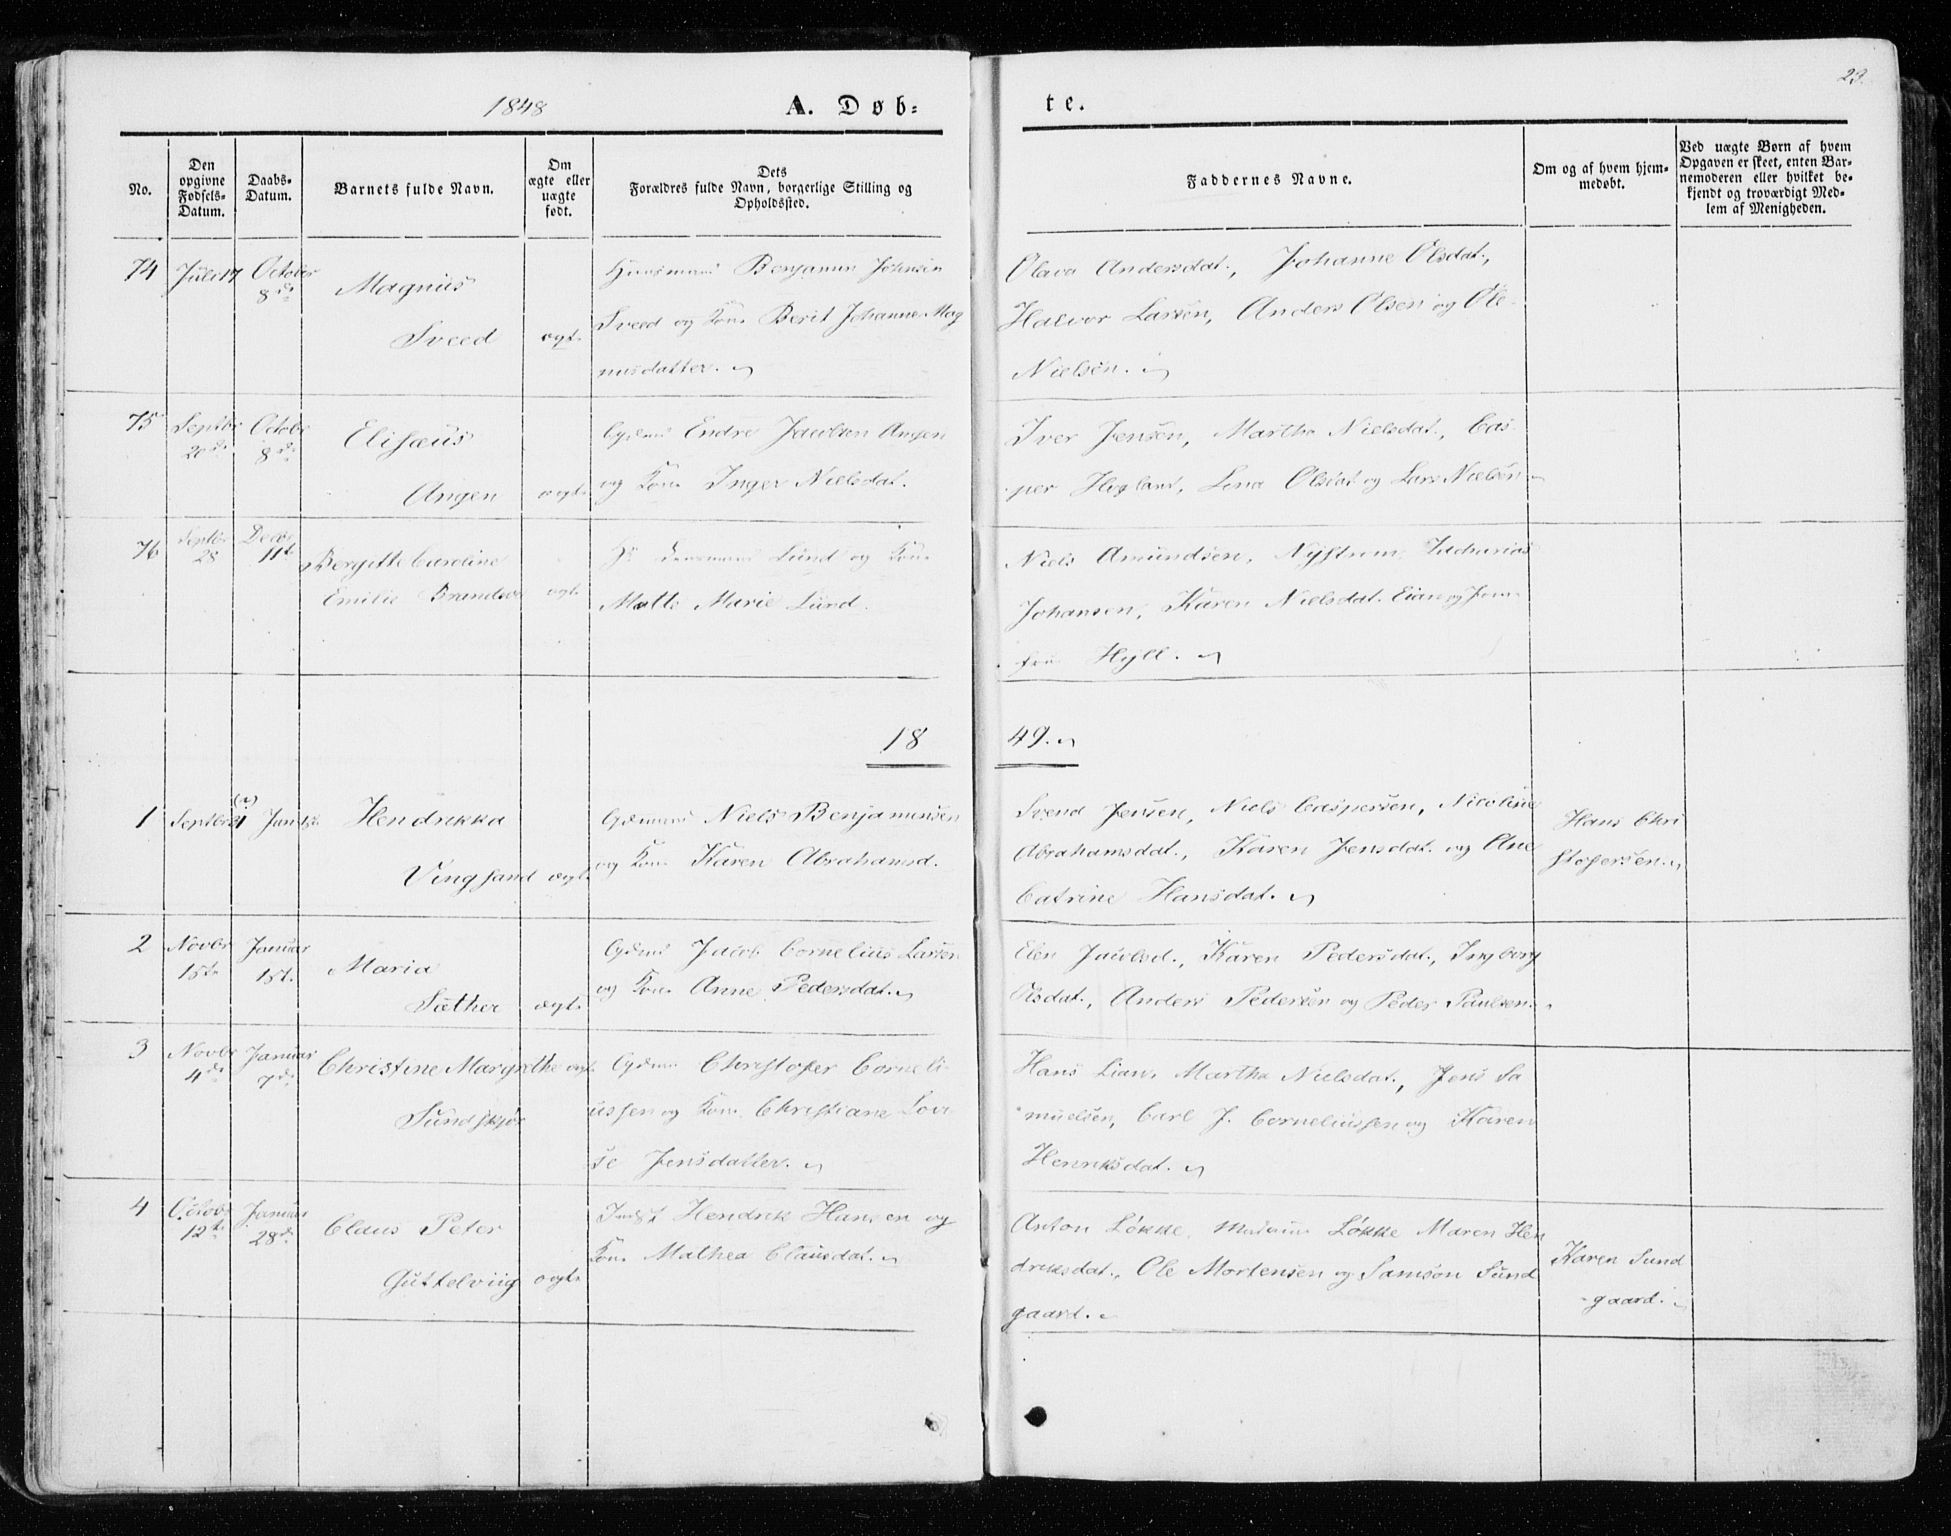 1848
A. Døb=
te.
23.
No.
Den
opgivne
Fødsels-
Datum.
Daabs-
Datum.
Barnets fulde Navn.
Om
ægte eller
uægte
født.
Dets
Forældres fulde Navn, borgerlige Stilling og
Opholdssted.
Faddernes Navne.
Om og af hvem hjem-
medøbt.
Ved uægte Børn af hvem
Opgaven er skeet, enten Bar-
nemoderen eller hvilket be-
kjendt og troværdigt Med-
lem af Menigheden.
74
Juli 17
October
8de
Magnus
Sveed
ægte
Huusmand Benjamin Johnsen
Sveed og Kone Berit Johanne Mag
nusdatter.
Olava Andersdat., Johanne Olsdat.,
Halvor Larsen, Anders Olsen og Ole
Nielsen.
75
Septbr
20de
Octobr
8de
Elisæus
Angen
ægte
Gdmd Endre Jacobsen Angen
og Kone Inger Nielsdat.
Iver Jensen, Martha Nielsdat., Cas-
per , Lina Olsdat og Lars Nielsen
76
Septbr
28
Decbr
11te
Bergitte Caroline
Emilie
ægte
Lund og Kone
Mette Marie Lund.
Niels Amundsen, Nystrøm, Zacharias
Johansen, Karen Nielsdat. og Jom-
fru Hyll.
1849.
1
Septbr 21
Jan
Hendrikka
Vingsand
ægte
Gdmand Niels Benjaminsen
og Kone Karen Abrahamsd.
Svend Jensen, Niels Caspersen, Nicoline
Abrahamsdat., Karen Jensdat. og Ane
Catrine Hansdat.
Hans Chri
stofersen.
2
Novbr
15de
Januar
1st.
Maria
Sæther
ægte
Gdmd Jacob Cornelius Larsen
og Kone Anne Pedersdat.
Elen Jacobsd., Karen Pedersdat., Ingborg
Olsdat., Anders Pedersen og Peder Paulsen.
3
Novbr
4de
Januar
7de
Christine Margrethe
Sundskjør
ægte
Gdmd Christofer Corneli-
ussen og Kone Christiane Lovi-
se Jensdatter.
Hans Lian, Martha Nielsdat., Jens Sa
muelsen, Carl J. Corneliussen og Karen
Henriksdat.
4
Octobr
12te
Januar
28de
Claus Peter
Guttelviig
ægte
Indst Hendrik Hansen og
Kone Mathea Clausdat.
Anton Løkke, Madame Løkke Maren Hen
driksdat., Ole Mortensen og Samson Sund
gaard.
Karen Sund
gaard.